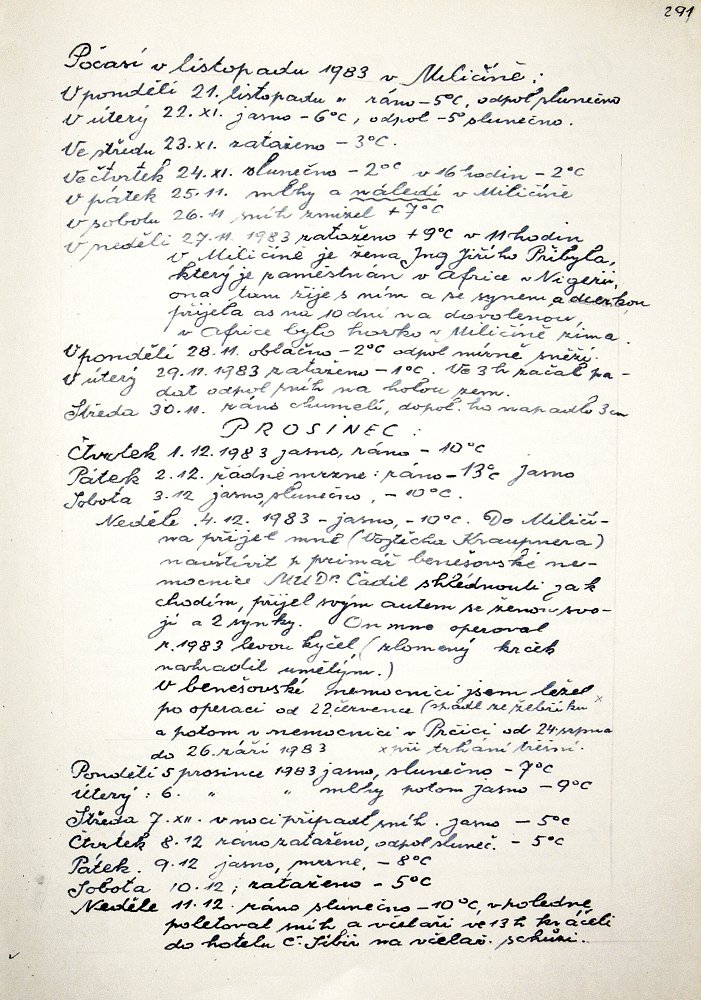 291
Počasí v listopadu 1983 v Miličíně:
V pondělí 21. listopadu " ráno -5°C, odpol slunečno
V úterý 22. XI. jasno -6°C, odpol -5 slunečno.
Ve středu 23. XI. zataženo -3°C.
Ve čtvrtek 24. XI. slunečno -2°C v 16 hodin -2°C
V pátek 25. 11. mlhy a náledí v Miličíně
v sobotu 26. 11 sníh zmizel +7°C
V neděli 27. 11. 1983 zataženo +9°C v 11 hodin
v Miličíně je žena Ing Jiřího Přibyla,
který je zaměstnán v Africe v Nigerii,
ona tam žije s ním a se synem a dcerkou
přijela as na 10 dní na dovolenou,
v Africe bylo horko v Miličíně zima.
V pondělí 28. 11. oblačno -2°C odpol mírně sněží.
V úterý 29. 11. 1983 zataženo -1°C. Ve 3 h začal pa-
dat odpol sníh na holou zem.
Středa 30. 11. ráno chumelí, dopol. ho napadlo 3 cm
PROSINEC:
Čtvrtek 1. 12. 1983 jasno, ráno -10°C
Pátek 2. 12. řádně mrzne: ráno -13°C jasno
Sobota 3. 12 jasno, slunečno, -10°C.
Neděle 4. 12. 1983 - jasno, -10°C. Do Miličí-
na přijel mně (Vojtěcha Kraupnera)
navštívit p primář benešovské ne-
mocnice MUDr. Čadil shlédnouti jak
chodím, přijel svým autem se ženou svo-
jí a 2 synky. On mne operoval
r. 1983 levou kyčel (zlomený krček
nahradil umělým.)
V benešovské nemocnici jsem ležel
po operaci od 22 července (spadl ze žebříku x
a potom v nemocnici v Prčici od 24. srpna
do 26. září 1983 x při trhání třešní.
Pondělí 5 prosince 1983 jasno, slunečno -7°C
Úterý: 6. " " mlhy potom jasno -9°C
Středa 7. XII. v noci připadl sníh. jasno -5°C
Čtvrtek 8. 12 ráno zataženo, odpol sluneč. -5°C
Pátek. 9. 12 jasno, mrzne, -8°C
Sobota 10. 12; zataženo -5°C
Neděle 11. 12. ráno slunečno -10°C, v poledne
poletoval sníh a včelaři ve 13 h kráčeli
do hotelu Č. Sibiř na včelař. schůzi.